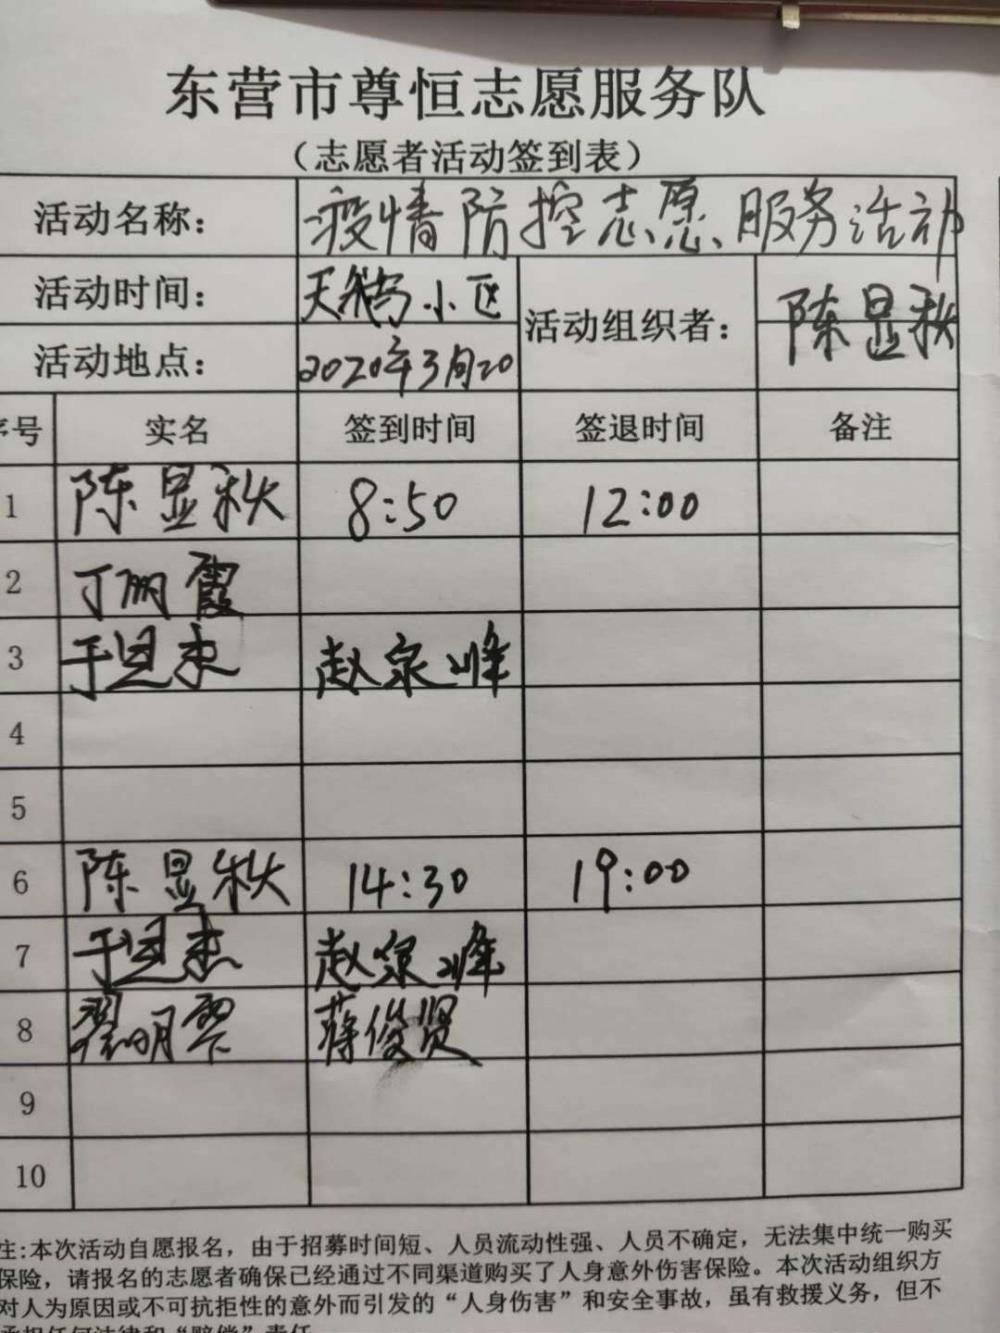 东营市尊恒志愿服务队
（志愿者活动签到表）
活动名称： 疫情防控志愿服务活动
活动时间： 天鹅小区 活动组织者： 陈显秋
活动地点： 2020年3月20
序号 实名 签到时间 签退时间 备注
1 陈显秋 8:50 12:00
2 丁丽霞
3 赵泉峰
4
5
6 陈显秋 14:30 19:00
7 赵泉峰
8 明霞 蒋俊贤
9
10
注:本次活动自愿报名，由于招募时间短、人员流动性强、人员不确定，无法集中统一购买
保险，请报名的志愿者确保已经通过不同渠道购买了人身意外伤害保险。本次活动组织方
对人为原因或不可抗拒性的意外而引发的“人身伤害”和安全事故，虽有救援义务，但不
承担任何法律和“赔偿”责任